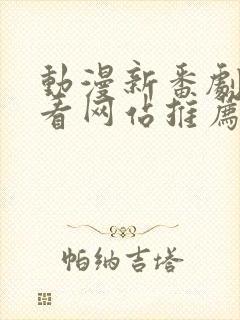 動漫新番劇
看网估推薦
帕纳吉塔